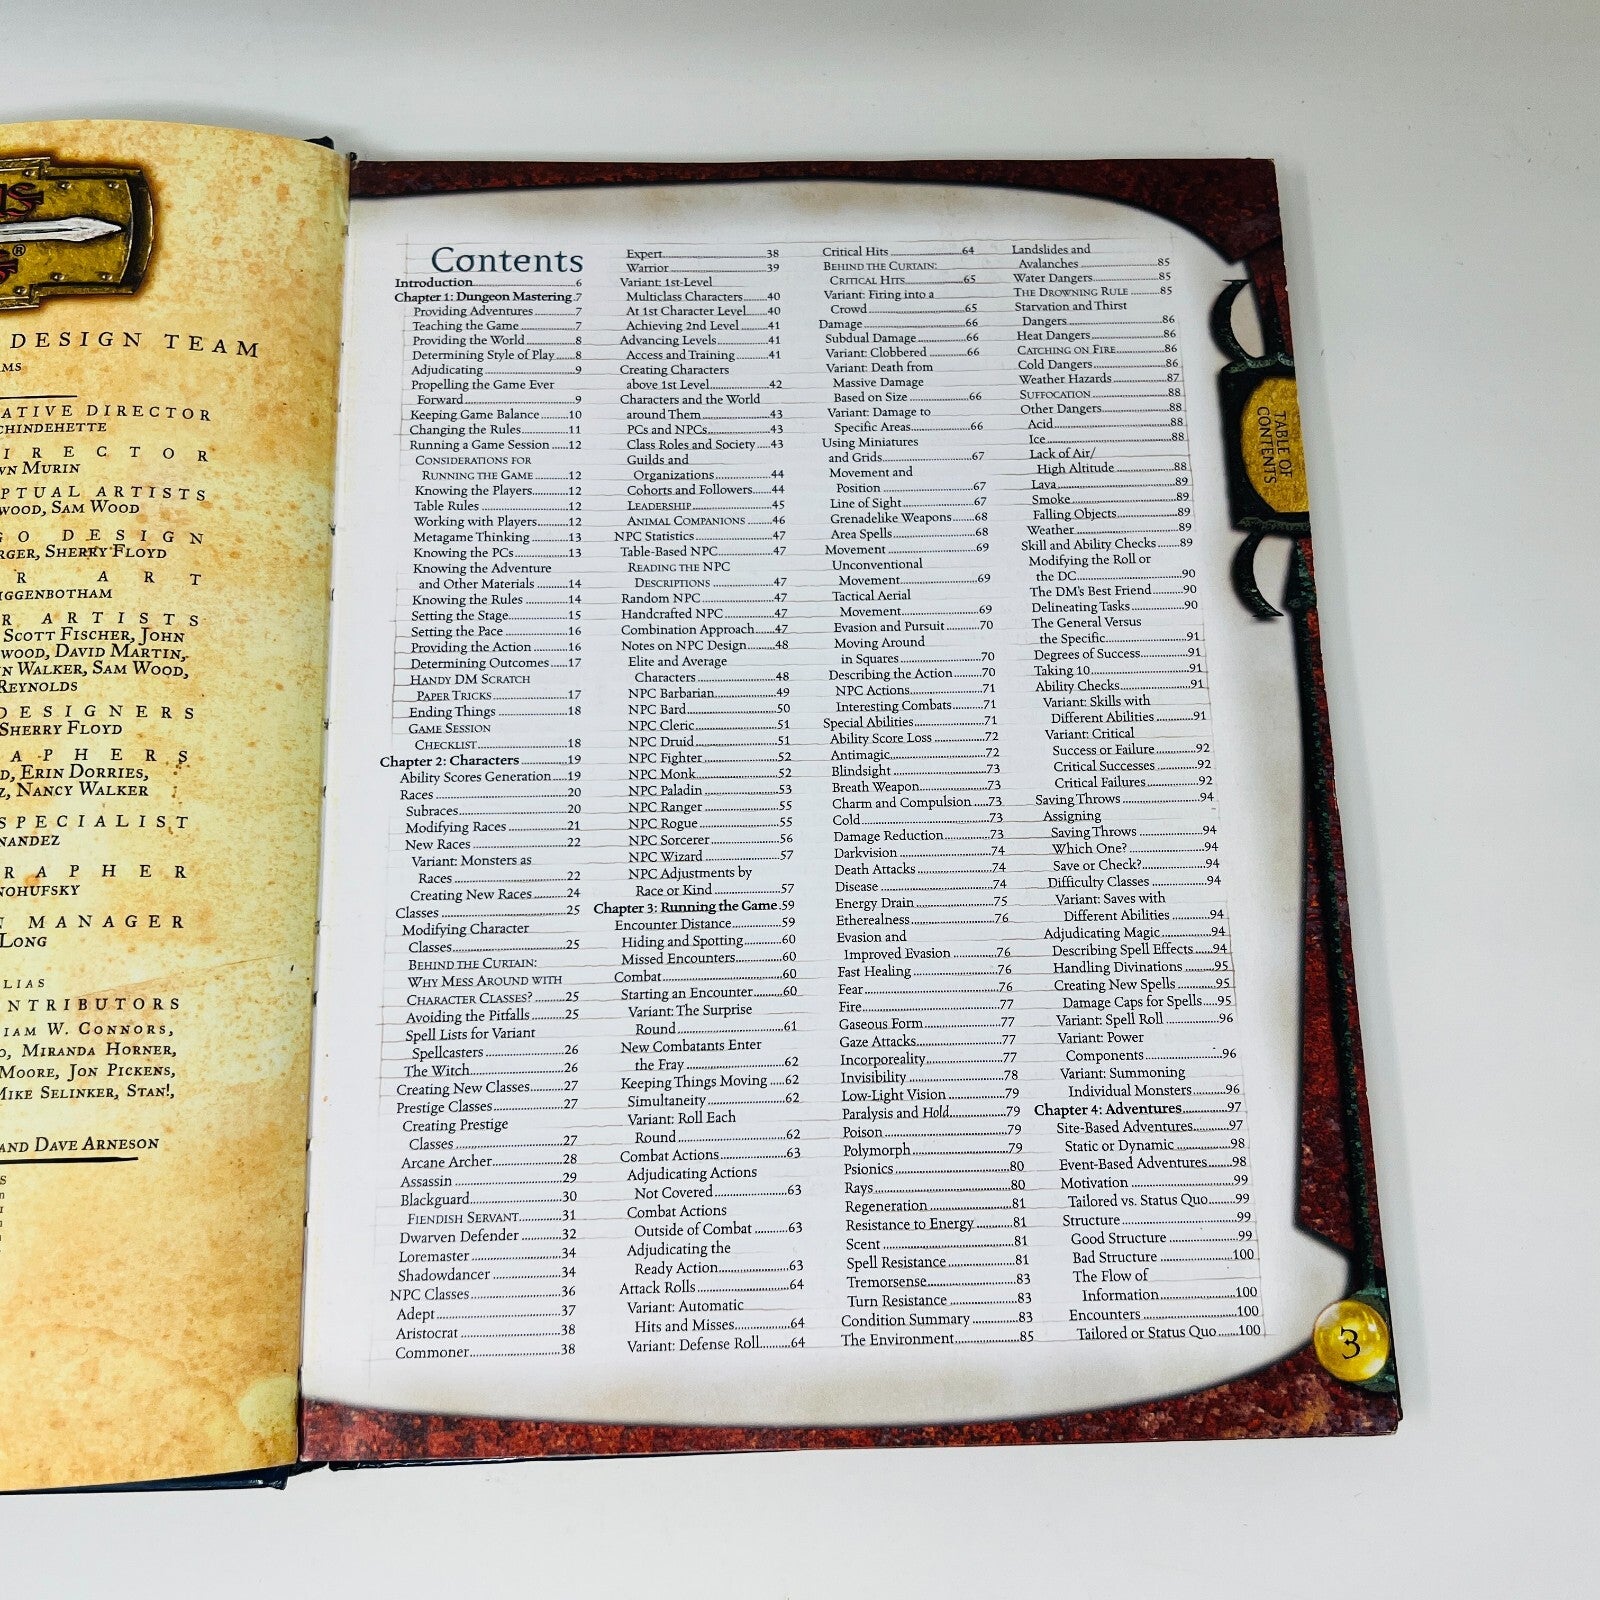 DESIGN TEAM
ATIVE DIRECTOR
CHINDEHETTE
IRECTOR
WN MURIN
PTUAL ARTISTS
WOOD, SAM WOOD
GO DESIGN
RGER, SHERRY FLOYD
R ART
IGGENBOTHAM
R ARTISTS
SCOTT FISCHER, JOHN
WOOD, DAVID MARTIN,
N WALKER, SAM WOOD,
REYNOLDS
DESIGNERS
SHERRY FLOYD
RAPHERS
D, ERIN DORRIES,
Z, NANCY WALKER
SPECIALIST
NANDEZ
RAPHER
NOHUFSKY
N MANAGER
LONG
LIAS
NTRIBUTORS
IAM W. CONNORS,
O, MIRANDA HORNER,
MOORE, JON PICKENS,
MIKE SELINKER, STAN!,
AND DAVE ARNESON
Contents
Introduction 6
Chapter 1: Dungeon Mastering 7
Providing Adventures 7
Teaching the Game 7
Providing the World 8
Determining Style of Play 8
Adjudicating 9
Propelling the Game Ever
Forward 9
Keeping Game Balance 10
Changing the Rules 11
Running a Game Session 12
CONSIDERATIONS FOR
RUNNING THE GAME 12
Knowing the Players 12
Table Rules 12
Working with Players 12
Metagame Thinking 13
Knowing the PCs 13
Knowing the Adventure
and Other Materials 14
Knowing the Rules 14
Setting the Stage 15
Setting the Pace 16
Providing the Action 16
Determining Outcomes 17
HANDY DM SCRATCH
PAPER TRICKS 17
Ending Things 18
GAME SESSION
CHECKLIST 18
Chapter 2: Characters 19
Ability Scores Generation 19
Races 20
Subraces 20
Modifying Races 21
New Races 22
Variant: Monsters as
Races 22
Creating New Races 24
Classes 25
Modifying Character
Classes 25
BEHIND THE CURTAIN:
WHY MESS AROUND WITH
CHARACTER CLASSES? 25
Avoiding the Pitfalls 25
Spell Lists for Variant
Spellcasters 26
The Witch 26
Creating New Classes 27
Prestige Classes 27
Creating Prestige
Classes 27
Arcane Archer 28
Assassin 29
Blackguard 30
FIENDISH SERVANT 31
Dwarven Defender 32
Loremaster 34
Shadowdancer 34
NPC Classes 36
Adept 37
Aristocrat 38
Commoner 38
Expert 38
Warrior 39
Variant: 1st-Level
Multiclass Characters 40
At 1st Character Level 40
Achieving 2nd Level 41
Advancing Levels 41
Access and Training 41
Creating Characters
above 1st Level 42
Characters and the World
around Them 43
PCs and NPCs 43
Class Roles and Society 43
Guilds and
Organizations 44
Cohorts and Followers 44
LEADERSHIP 45
ANIMAL COMPANIONS 46
NPC Statistics 47
Table-Based NPC 47
READING THE NPC
DESCRIPTIONS 47
Random NPC 47
Handcrafted NPC 47
Combination Approach 47
Notes on NPC Design 48
Elite and Average
Characters 48
NPC Barbarian 49
NPC Bard 50
NPC Cleric 51
NPC Druid 51
NPC Fighter 52
NPC Monk 52
NPC Paladin 53
NPC Ranger 55
NPC Rogue 55
NPC Sorcerer 56
NPC Wizard 57
NPC Adjustments by
Race or Kind 57
Chapter 3: Running the Game 59
Encounter Distance 59
Hiding and Spotting 60
Missed Encounters 60
Combat 60
Starting an Encounter 60
Variant: The Surprise
Round 61
New Combatants Enter
the Fray 62
Keeping Things Moving 62
Simultaneity 62
Variant: Roll Each
Round 62
Combat Actions 63
Adjudicating Actions
Not Covered 63
Combat Actions
Outside of Combat 63
Adjudicating the
Ready Action 63
Attack Rolls 64
Variant: Automatic
Hits and Misses 64
Variant: Defense Roll 64
Critical Hits 64
BEHIND THE CURTAIN:
CRITICAL HITS 65
Variant: Firing into a
Crowd 65
Damage 66
Subdual Damage 66
Variant: Clobbered 66
Variant: Death from
Massive Damage
Based on Size 66
Variant: Damage to
Specific Areas 66
Using Miniatures
and Grids 67
Movement and
Position 67
Line of Sight 67
Grenadelike Weapons 68
Area Spells 68
Movement 69
Unconventional
Movement 69
Tactical Aerial
Movement 69
Evasion and Pursuit 70
Moving Around
in Squares 70
Describing the Action 70
NPC Actions 71
Interesting Combats 71
Special Abilities 71
Ability Score Loss 72
Antimagic 72
Blindsight 73
Breath Weapon 73
Charm and Compulsion 73
Cold 73
Damage Reduction 73
Darkvision 74
Death Attacks 74
Disease 74
Energy Drain 75
Etherealness 76
Evasion and
Improved Evasion 76
Fast Healing 76
Fear 76
Fire 77
Gaseous Form 77
Gaze Attacks 77
Incorporeality 77
Invisibility 78
Low-Light Vision 79
Paralysis and Hold 79
Poison 79
Polymorph 79
Psionics 80
Rays 80
Regeneration 81
Resistance to Energy 81
Scent 81
Spell Resistance 81
Tremorsense 83
Turn Resistance 83
Condition Summary 83
The Environment 85
Landslides and
Avalanches 85
Water Dangers 85
THE DROWNING RULE 85
Starvation and Thirst
Dangers 86
Heat Dangers 86
CATCHING ON FIRE 86
Cold Dangers 86
Weather Hazards 87
SUFFOCATION 88
Other Dangers 88
Acid 88
Ice 88
Lack of Air/
High Altitude 88
Lava 89
Smoke 89
Falling Objects 89
Weather 89
Skill and Ability Checks 89
Modifying the Roll or
the DC 90
The DM's Best Friend 90
Delineating Tasks 90
The General Versus
the Specific 91
Degrees of Success 91
Taking 10 91
Ability Checks 91
Variant: Skills with
Different Abilities 91
Variant: Critical
Success or Failure 92
Critical Successes 92
Critical Failures 92
Saving Throws 94
Assigning
Saving Throws 94
Which One? 94
Save or Check? 94
Difficulty Classes 94
Variant: Saves with
Different Abilities 94
Adjudicating Magic 94
Describing Spell Effects 94
Handling Divinations 95
Creating New Spells 95
Damage Caps for Spells 95
Variant: Spell Roll 96
Variant: Power
Components 96
Variant: Summoning
Individual Monsters 96
Chapter 4: Adventures 97
Site-Based Adventures 97
Static or Dynamic 98
Event-Based Adventures 98
Motivation 99
Tailored vs. Status Quo 99
Structure 99
Good Structure 99
Bad Structure 100
The Flow of
Information 100
Encounters 100
Tailored or Status Quo 100
TABLE OF
CONTENTS
3